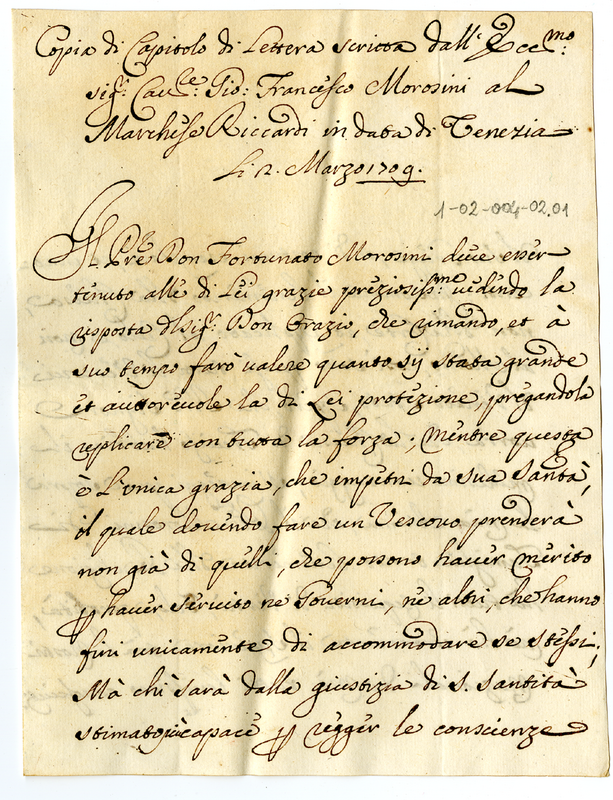 Copia di Capitolo di Lettera scritta dall' Ecc.mo
sig.r Cau.re Gio: Francesco Morosini al
Marchese Riccardi in data di Venezia
Li 2. Marzo 1709.
1-02-004-02.01
Il Pre Don Fortunato Morosini deve esser
tenuto alle di Lei grazie preziosiss.me vedendo la
risposta del sig.r Don Orazio, che rimando, et à
suo tempo farò valere quanto sij stata grande
et auttorevole la di Lei protezione, pregandola
replicare con tutta la forza; mentre questa
è l'unica grazia, che impetri da sua Santità,
il quale dovendo fare un Vescovo prenderà
non già di quelli, che possono haver merito
p haver servito ne Governi, ne altri, che hanno
fini unicamente di accommodare se stessi;
Mà chi sarà dalla giustizia di S. Santità
stimato capace p regger le conscienze